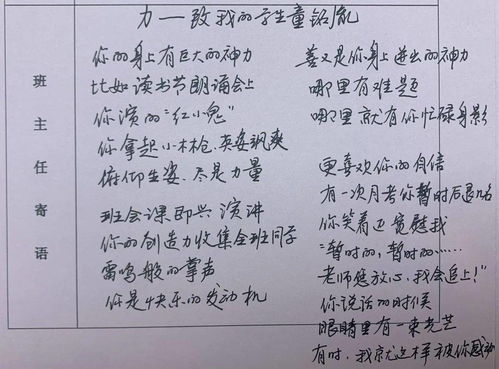 力——致我的学生童铭胤
班主任寄语
你的身上有巨大的神力
比如读书节朗诵会上
你演的“红小鬼”
你拿起小木枪,英姿飒爽
俯仰生姿,尽是力量
班会课即兴演讲
你的创造力收集全班同学
雷鸣般的掌声
你是快乐的发动机
喜又是你身上迸出的神力
哪里有难题
哪里就有你忙碌身影
更喜欢你的自信
有一次月考你暂时后退几名
你笑着还宽慰我
“暂时的,暂时的……
老师您放心,我会追上!”
你说话的时候
眼睛里有一束光芒
有时,我就这样被你感动